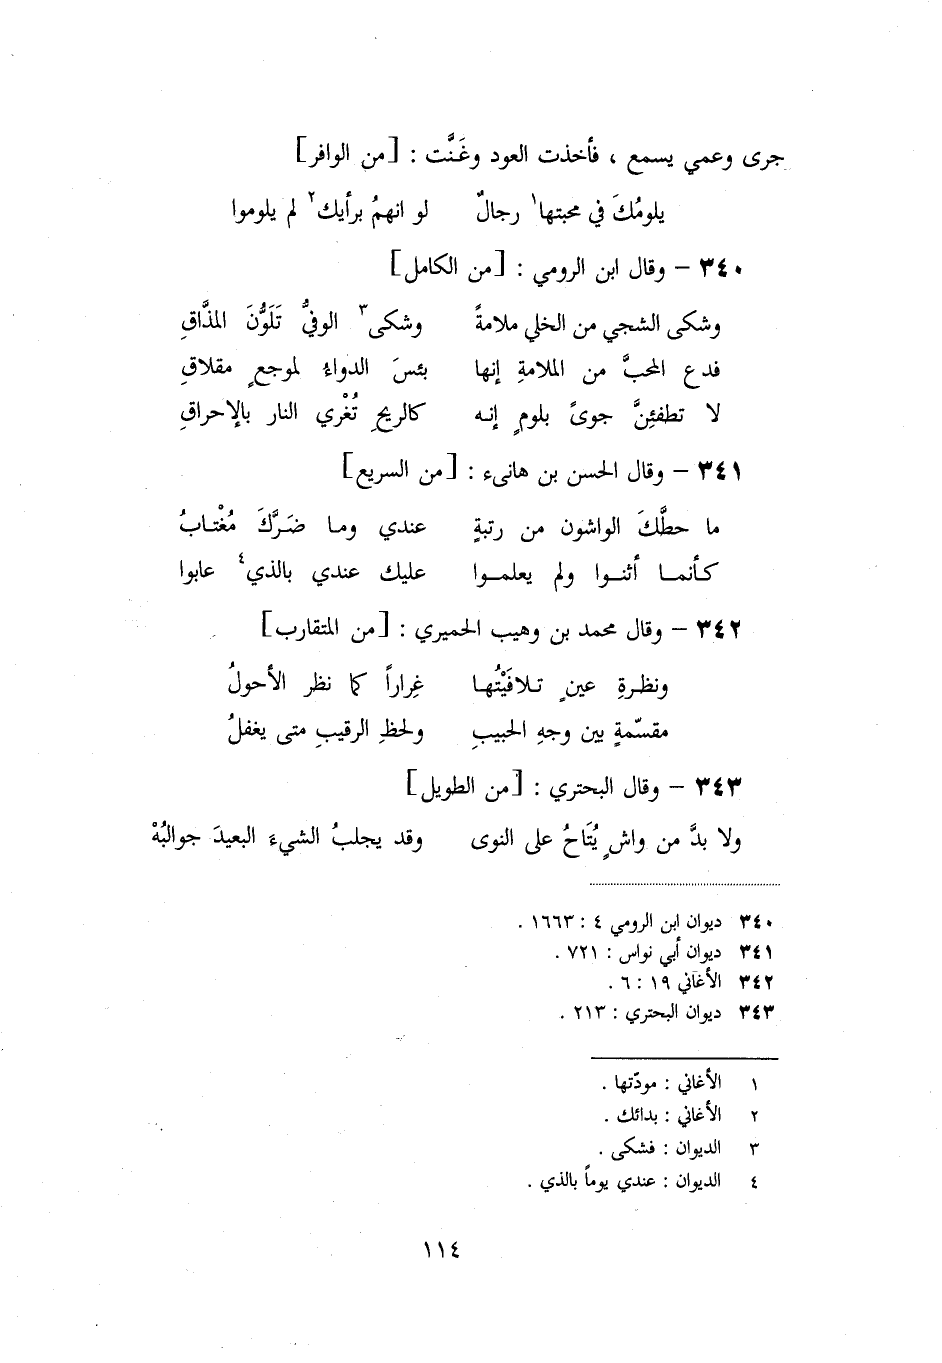 جرى وعمي يسمع ، فأخذت العود وغَنَّت : [من الوافر]
يلومُكَ في محبتها١ رجالٌ لو انهمُ برأيك٢ لم يلوموا
٣٤٠ – وقال ابن الرومي : [من الكامل]
وشكى الشجي من الخلي ملامةً وشكى٣ الوفيُّ تَلَوُّنَ المذَّاقِ
فدع المحبَّ من الملامةِ إنها بئسَ الدواءُ لموجعٍ مقلاقِ
لا تطفئِنَّ جوىً بلومٍ إنه كالريحِ تُغْري النار بالإحراقِ
٣٤١ – وقال الحسن بن هانىء : [من السريع]
ما حطَّكَ الواشون من رتبةٍ عندي وما ضَرَّكَ مُغْتابُ
كأنما أثنوا ولم يعلموا عليك عندي بالذي٤ عابوا
٣٤٢ – وقال محمد بن وهيب الحميري : [من المتقارب]
ونظرةِ عينٍ تلافَيْتُها غِراراً كما نظر الأحولُ
مقسّمةٍ بين وجهِ الحبيبِ ولحظِ الرقيبِ متى يغفلُ
٣٤٣ – وقال البحتري : [من الطويل]
ولا بدَّ من واشٍ يُتَاحُ على النوى وقد يجلبُ الشيءَ البعيدَ جوالبُهْ
٣٤٠ ديوان ابن الرومي ٤ : ١٦٦٣ .
٣٤١ ديوان أبي نواس : ٧٢١ .
٣٤٢ الأغاني ١٩ : ٦ .
٣٤٣ ديوان البحتري : ٢١٣ .
١ الأغاني : مودّتها .
٢ الأغاني : بدائك .
٣ الديوان : فشكى .
٤ الديوان : عندي يوماً بالذي .
١١٤